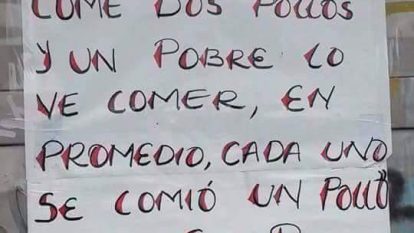 COME DOS POLLOS
Y UN POBRE LO
VE COMER, EN
PROMEDIO, CADA UNO
SE COMIÓ UN POLLO